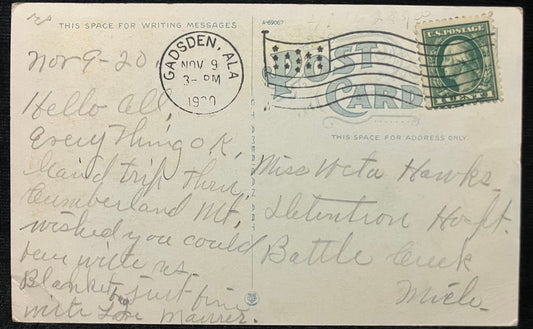 THIS SPACE FOR WRITING MESSAGES
A-69067
GADSDEN, ALA
NOV 9
3-PM
1920
U.S. POSTAGE
1 CENT 1
POST
CARD
THIS SPACE FOR ADDRESS ONLY
Nov 9-20
Hello all,
Everything O.K,
Grand trip thru
Cumberland Mt,
wished you could
been with us
Blanket bag just fine
with Love Maurer.
Miss Veta Hawks
Detention Hospt.
Battle Creek
Mich.